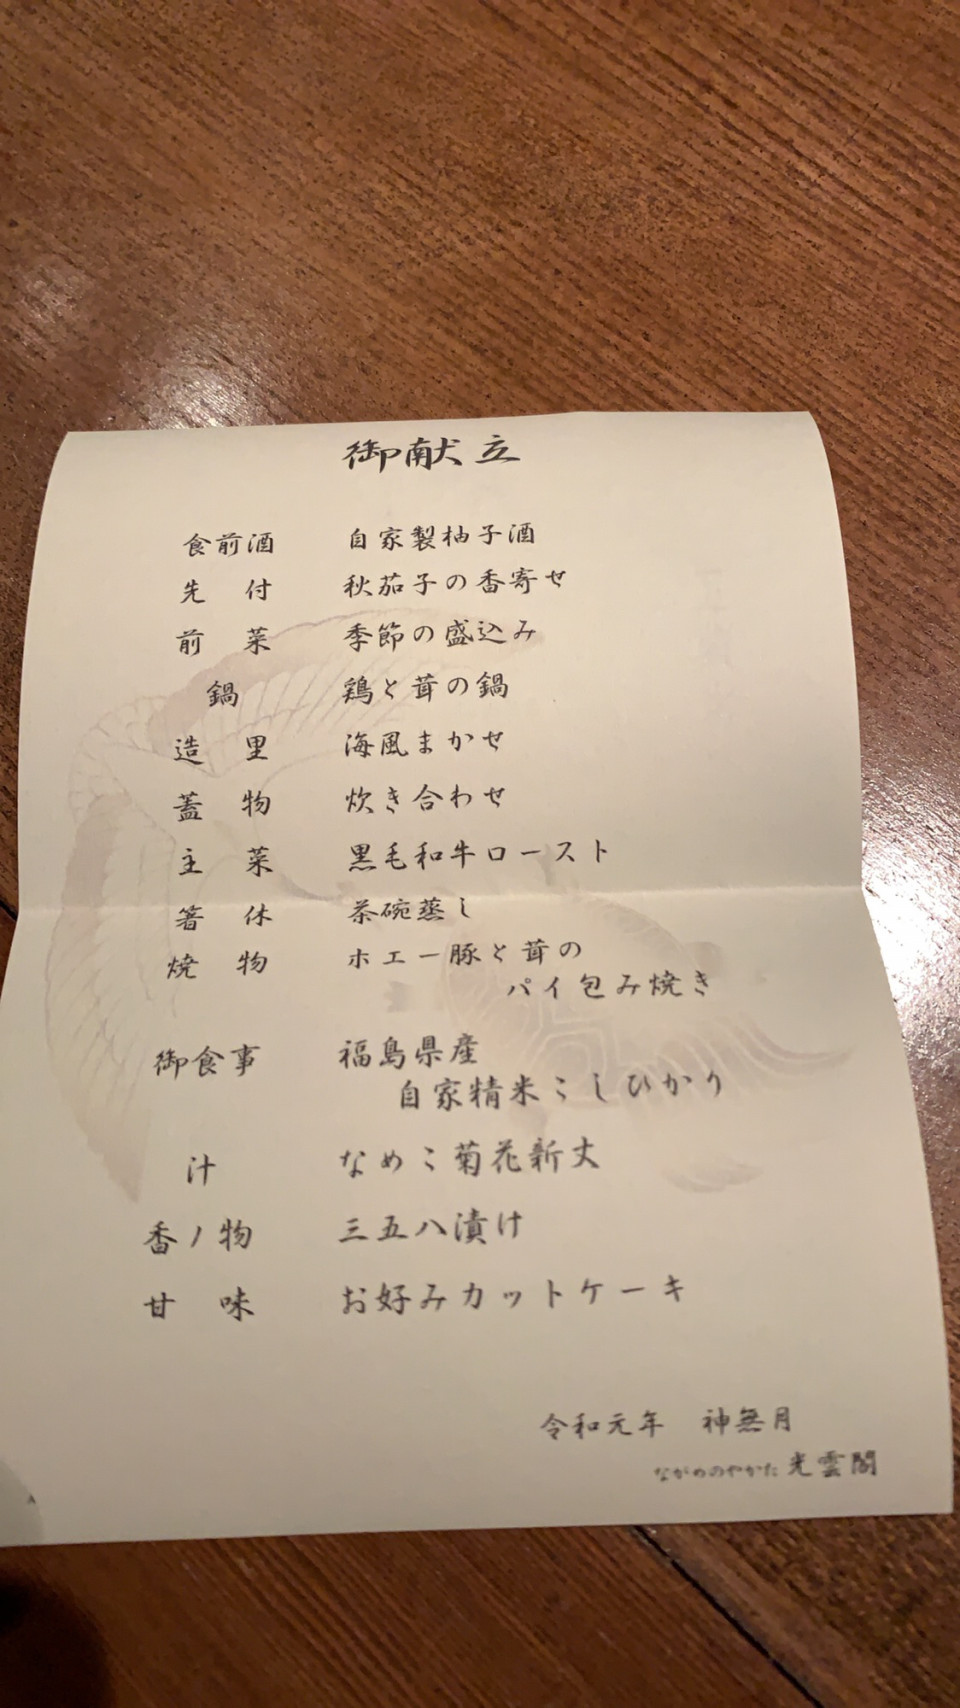 御献立
食前酒 自家製柚子酒
先付 秋茄子の香寄せ
前菜 季節の盛込み
鍋 鶏と茸の鍋
造里 海風まかせ
蓋物 炊き合わせ
主菜 黒毛和牛ロースト
箸休 茶碗蒸し
焼物 ホエー豚と茸の
パイ包み焼き
御食事 福島県産
自家精米こしひかり
汁 なめこ菊花新丈
香ノ物 三五八漬け
甘味 お好みカットケーキ
令和元年 神無月
ながめのやかた 光雲閣